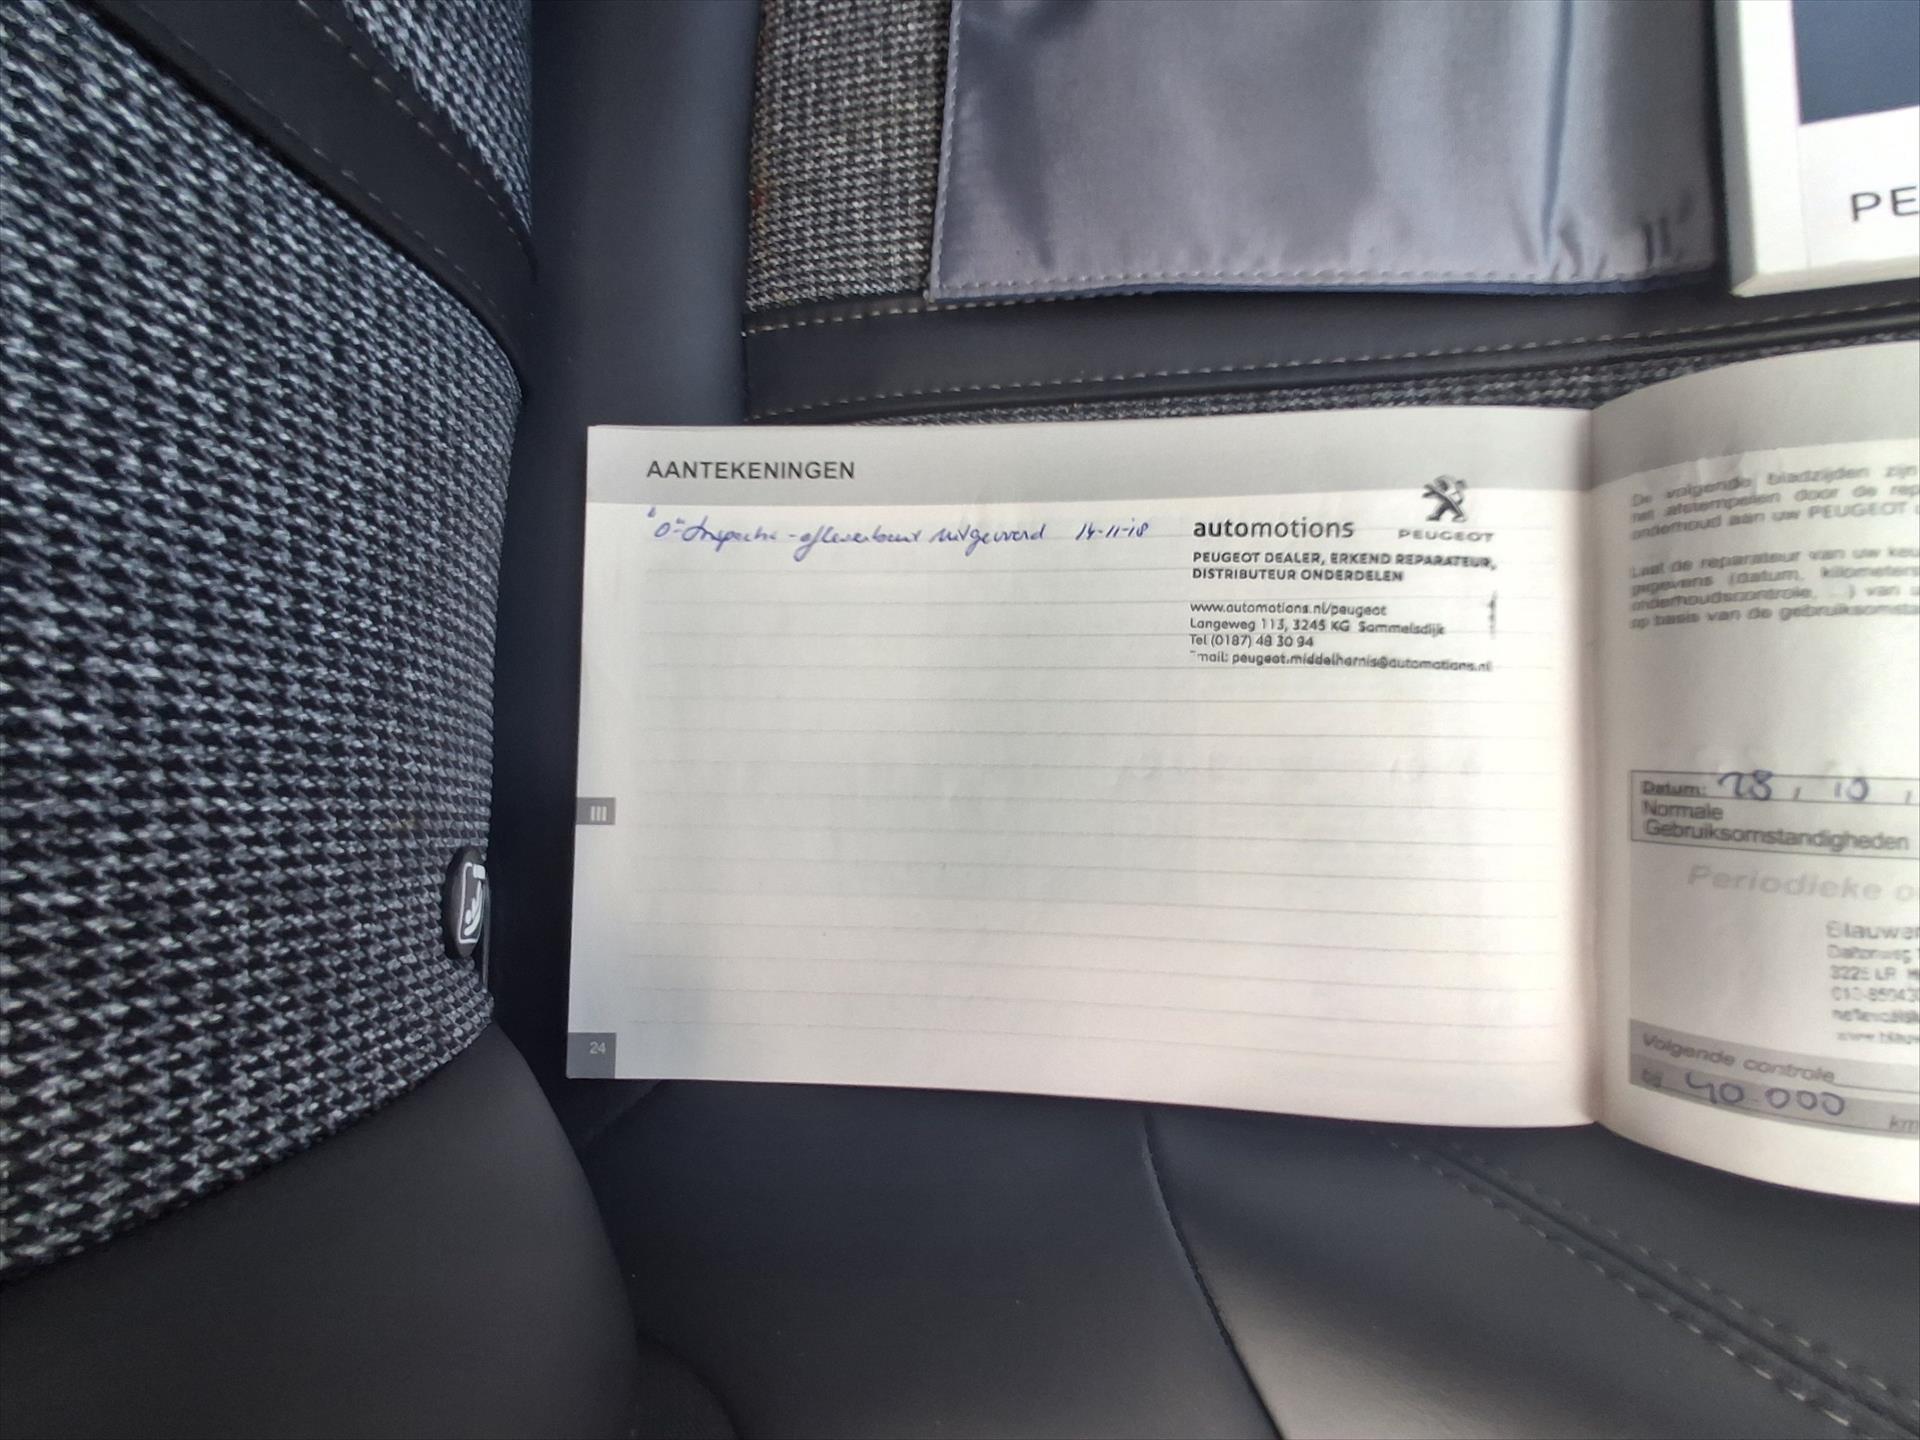 PE
AANTEKENINGEN
"0"-Inspectie - afleverbeurt uitgevoerd 14-11-18
automotions PEUGEOT
PEUGEOT DEALER, ERKEND REPARATEUR,
DISTRIBUTEUR ONDERDELEN
www.automotions.nl/peugeot
Langeweg 113, 3245 KG Sommelsdijk
Tel (0187) 48 30 94
mail: peugeot.middelharnis@automotions.nl
III
24
De volgende bladzijden zijn
het afstempelen door de rep
onderhoud aan uw PEUGEOT
Laat de reparateur van uw keu
gegevens (datum, kilometers
onderhoudscontrole, ...) van
op basis van de gebruiksomsta
Datum: 28, 10,
Normale
Gebruiksomstandigheden
Periodieke o
Blauwe
3225 LR
Volgende controle
bij 40.000 km